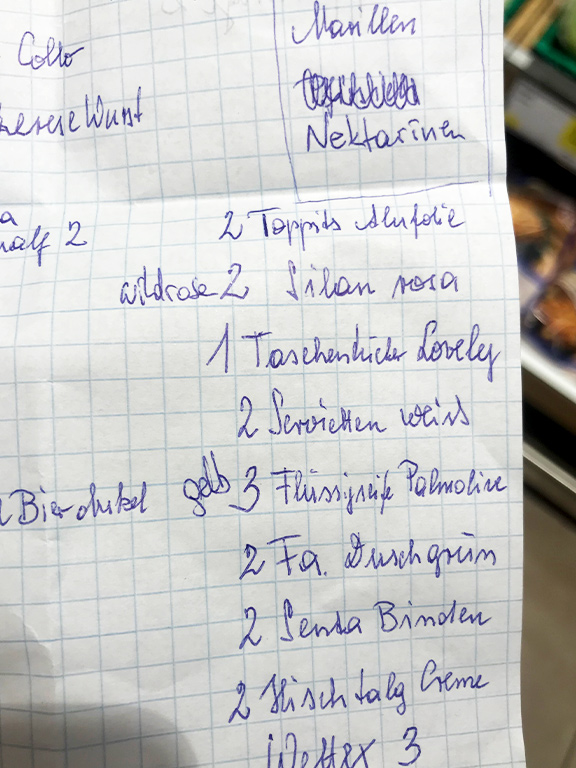 Marillen
Nektarinen
Wurst
2
2 Toppits Alufolie
wildrose 2 Silan rosa
1 Taschentücher Lovely
2 Servietten weiss
gelb 3 Flüssigseife Palmolive
Bier dunkel
2 Fa. Dusch grün
2 Senta Binden
2 Hirschtalg Creme
Wettex 3